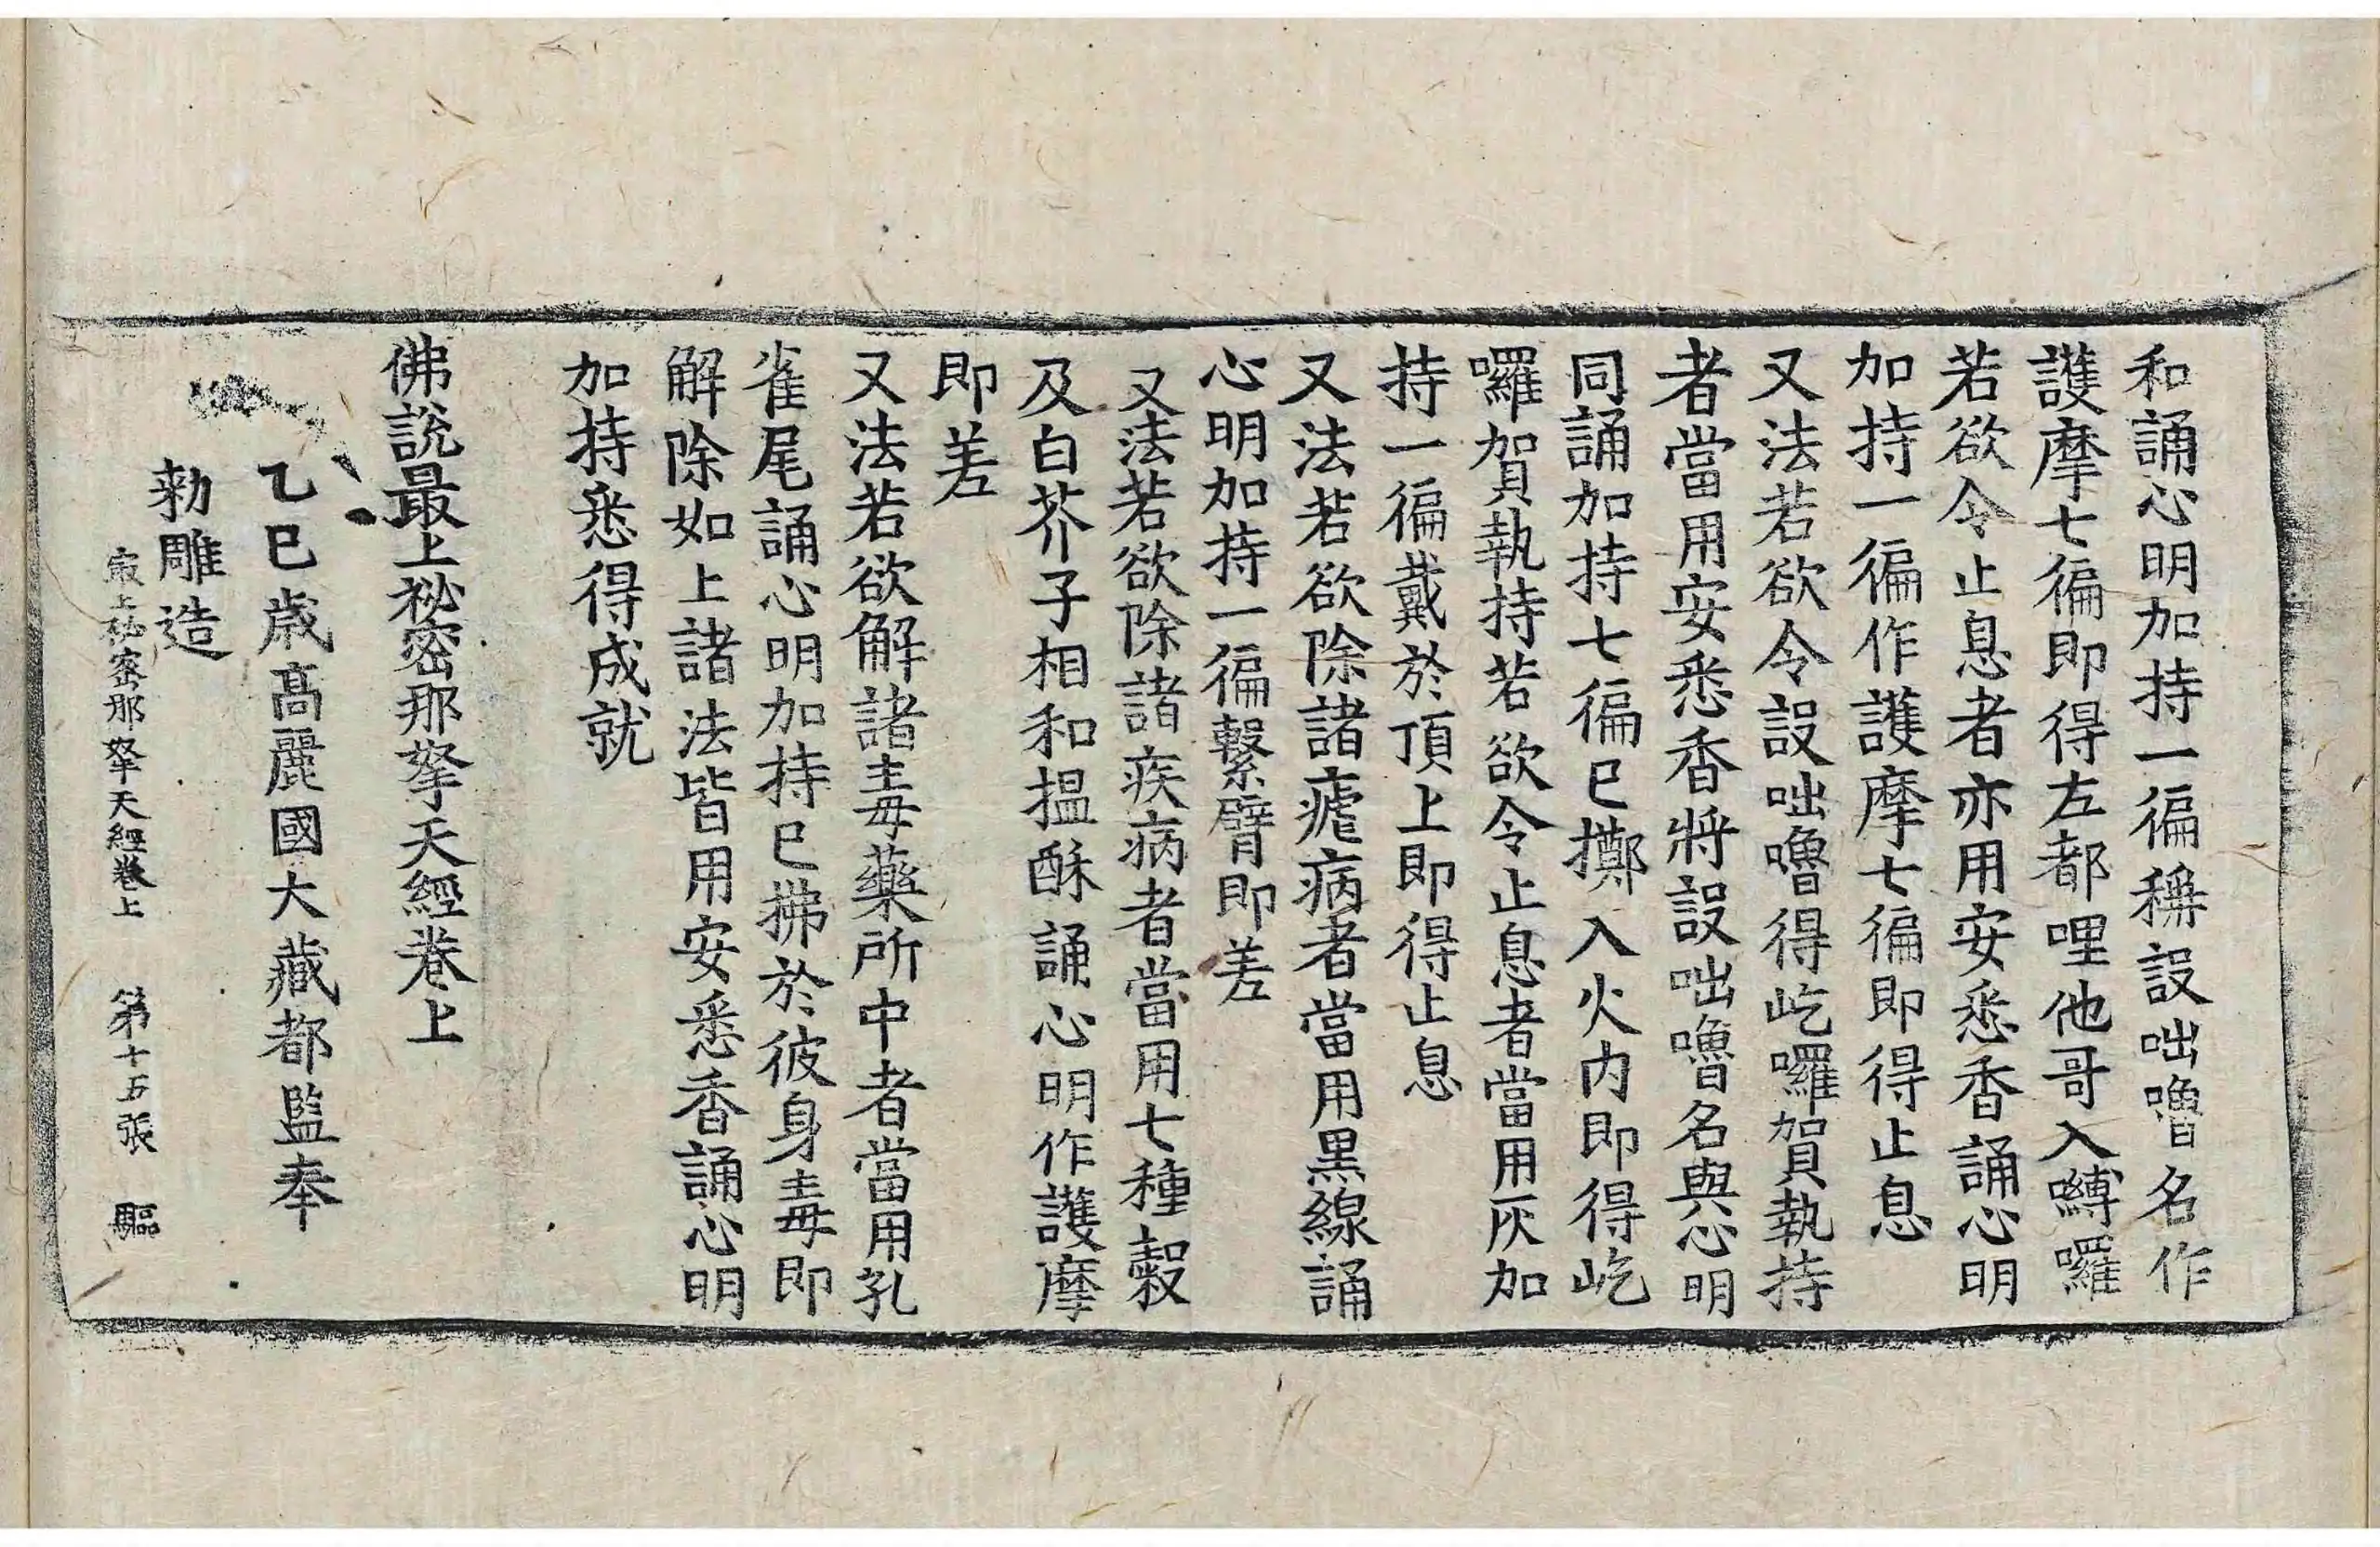 和誦心明加持一徧稱設咄嚕名作
護摩七徧即得左都哩他哥入嚩囉
若欲令止息者亦用安悉香誦心明
加持一徧作護摩七徧即得止息
又法若欲令設咄嚕得屹囉賀執持
者當用安悉香將設咄嚕名與心明
同誦加持七徧已擲入火内即得屹
囉賀執持若欲令止息者當用灰加
持一徧戴於頂上即得止息
又法若欲除諸瘧病者當用黒線誦
心明加持一徧繫臂即差
又法若欲除諸疾病者當用七種穀
及白芥子相和搵酥誦心明作護摩
即差
又法若欲解諸毒藥所中者當用孔
雀尾誦心明加持已拂於彼身毒即
解除如上諸法皆用安悉香誦心明
加持悉得成就
佛說最上祕密那拏天經卷上
乙巳歳髙麗國大藏都監奉
勅雕造
㝡上祕密那拏天經卷上 第十五張 驅